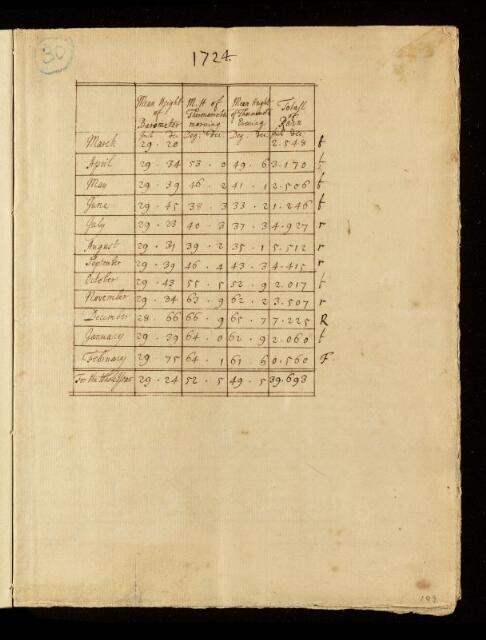 30
1724
Mean Height of Barometer M. H of Thermometer morning Mean Height of Thermometer Evening Totall of Rain
Inch dec Deg: dec. Deg: dec. Inch dec.
March 29 . 20 2.548 t
April 29 . 34 53 . 0 49 . 6 3.170 t
May 29 . 39 46 . 2 41 . 1 2.506 t
June 29 . 45 38 . 3 33 . 2 1.246 t
July 29 . 23 40 . 3 37 . 3 4.927 r
August 29 . 31 39 . 2 35 . 1 5.512 r
September 29 . 39 46 . 4 43 . 3 4.415 r
October 29 . 43 55 . 5 52 . 9 2.017 t
November 29 . 34 63 . 9 62 . 2 3.507 r
December 28 . 66 66 . 9 65 . 7 7.225 R
January 29 . 39 64 . 0 62 . 9 2.060 t
February 29 . 75 64 . 1 61 . 6 0.560 F
For the whole Year 29 . 24 52 . 5 49 . 5 39.693